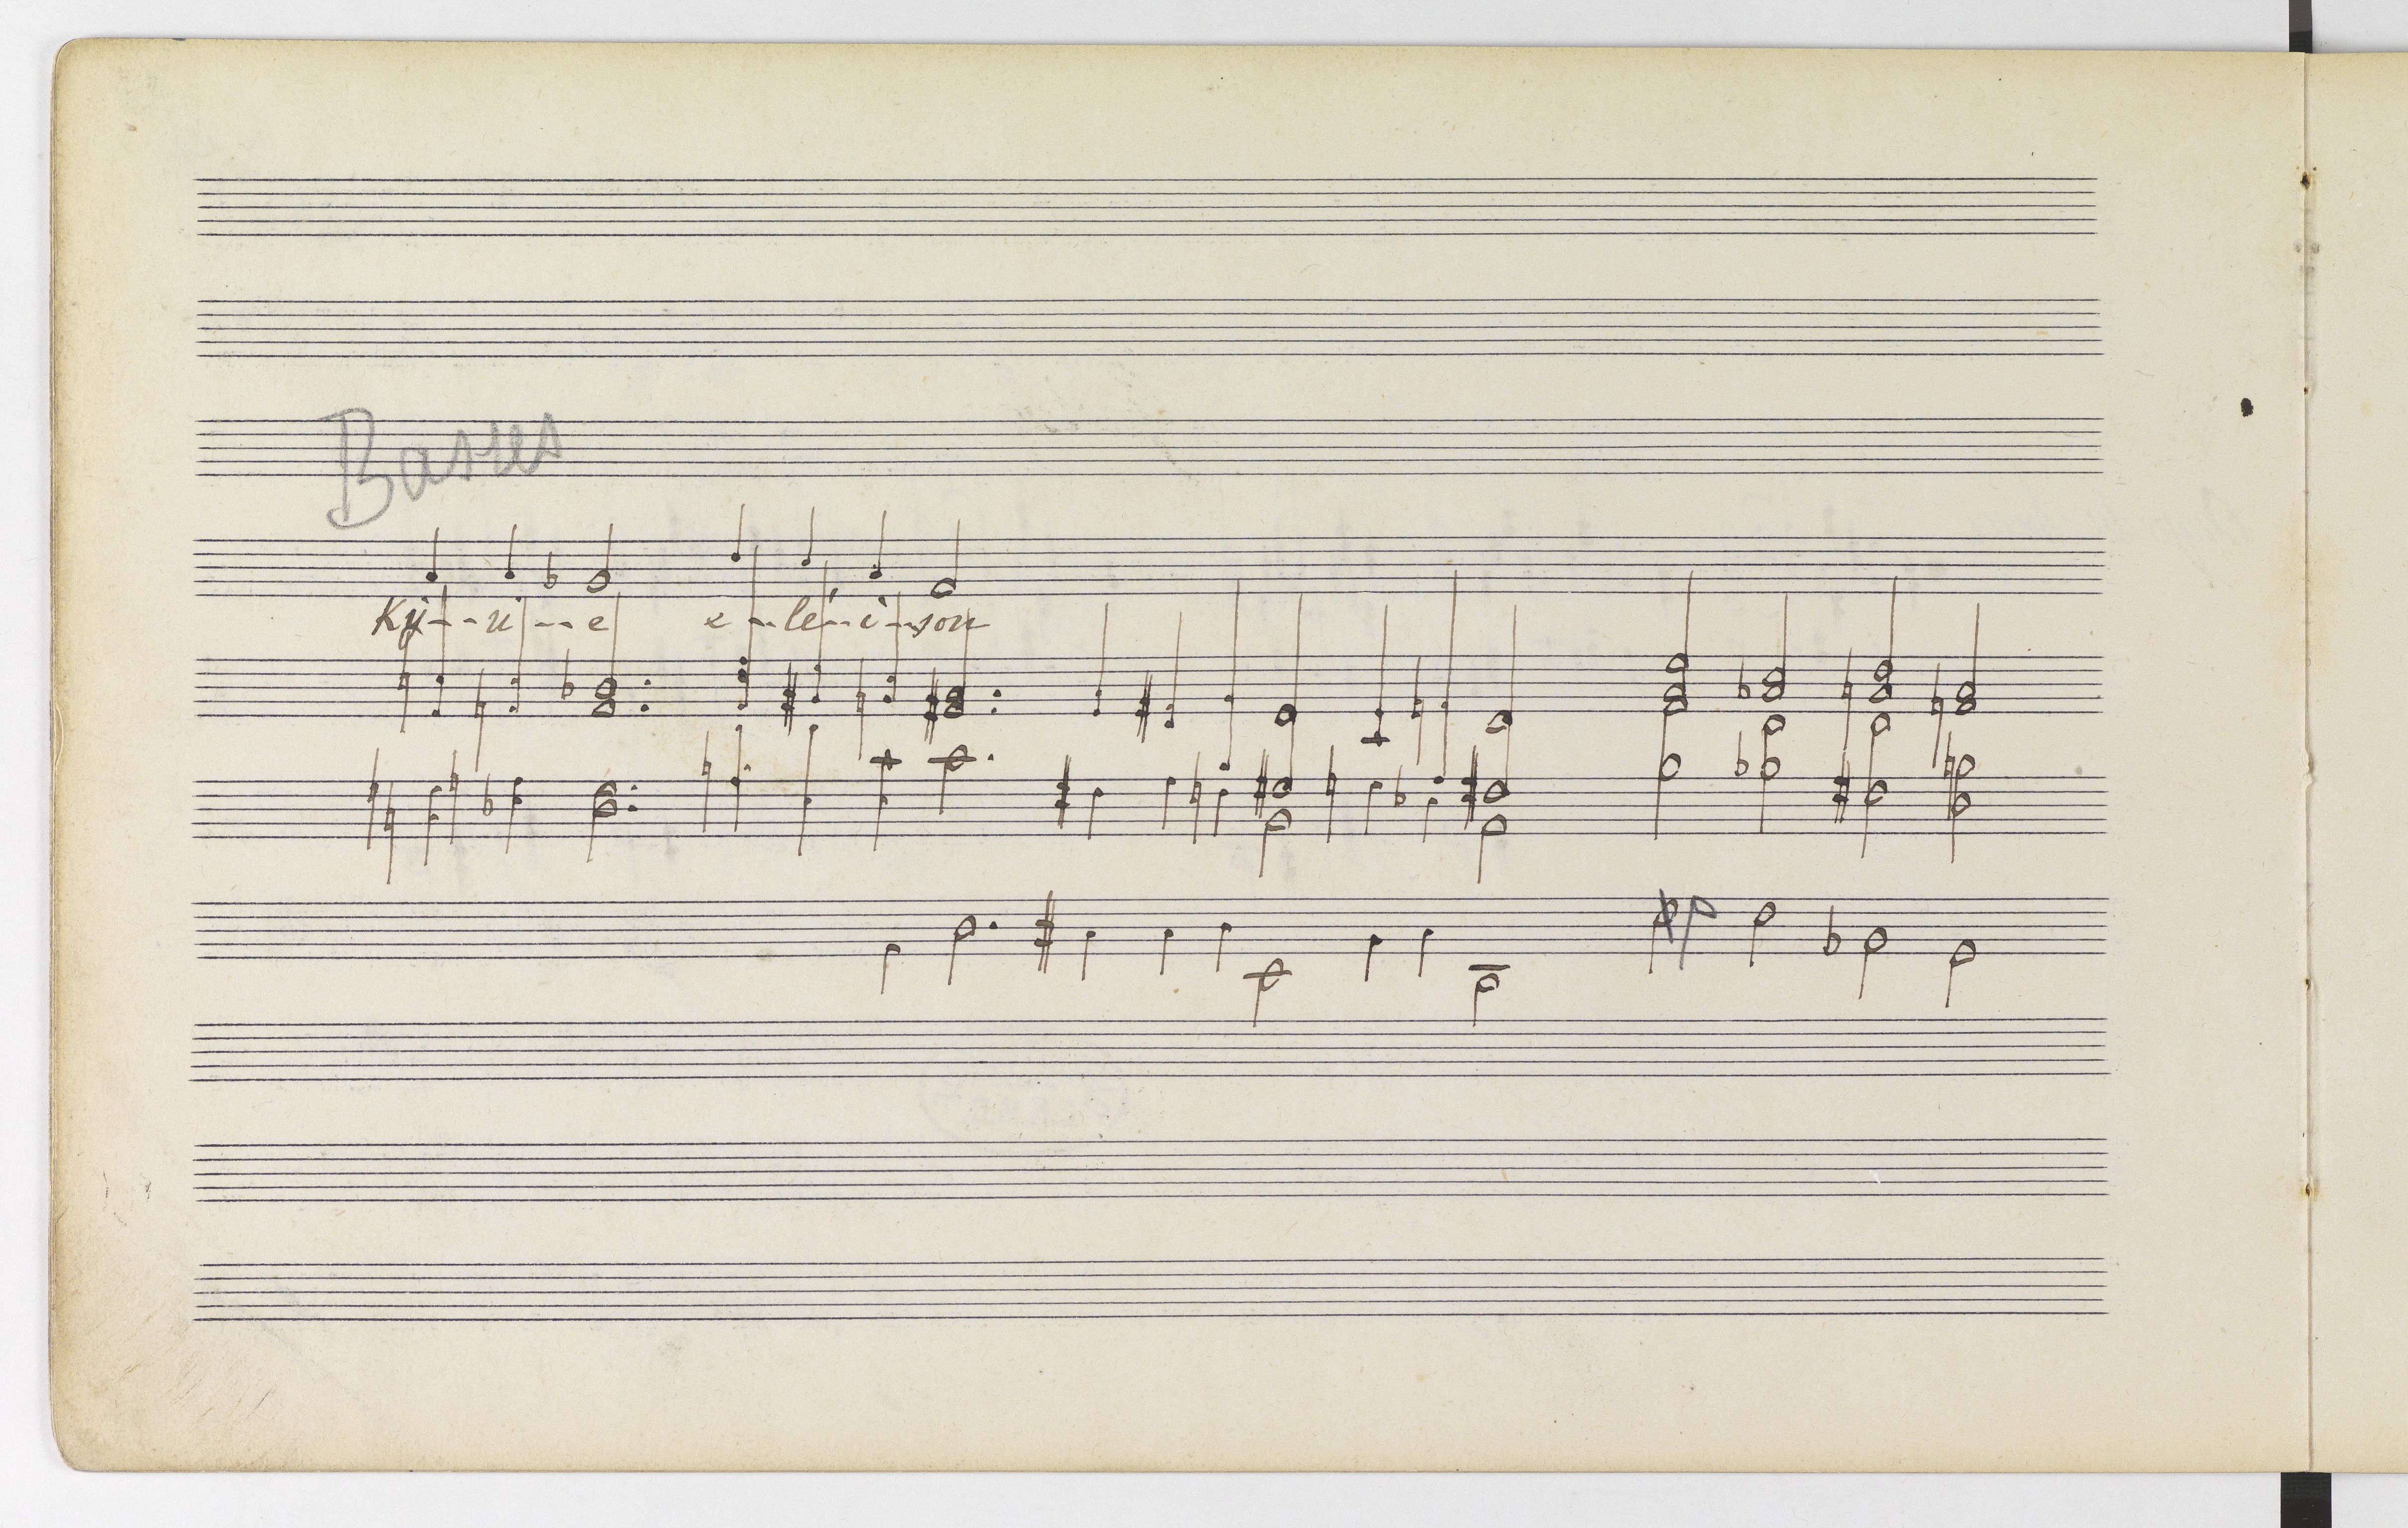 Basses
Ky--ri--e e--lé-i-son